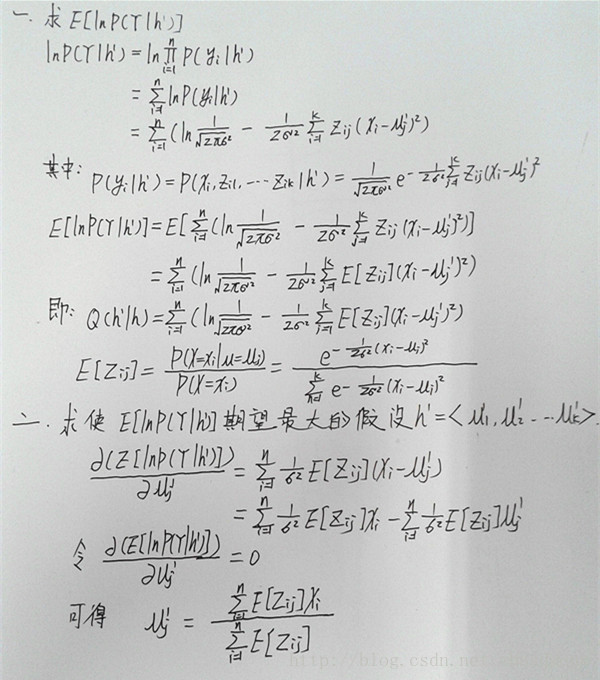 一. 求 E[lnP(Y|h')]
lnP(Y|h') = ln∏_{i=1}^{n} P(y_i|h')
= ∑_{i=1}^{n} lnP(y_i|h')
= ∑_{i=1}^{n} (ln 1/√(2πσ²) − 1/2σ² ∑_{j=1}^{k} z_{ij}(x_i−μ_j')²)
其中: P(y_i|h') = P(x_i, z_{i1}, … z_{ik}|h') = 1/√(2πσ²) e^{−1/2σ² ∑_{j=1}^{k} z_{ij}(x_i−μ_j')²}
E[lnP(Y|h')] = E[∑_{i=1}^{n} (ln 1/√(2πσ²) − 1/2σ² ∑_{j=1}^{k} z_{ij}(x_i−μ_j')²)]
= ∑_{i=1}^{n} (ln 1/√(2πσ²) − 1/2σ² ∑_{j=1}^{k} E[z_{ij}](x_i−μ_j')²)
即: Q(h'|h) = ∑_{i=1}^{n} (ln 1/√(2πσ²) − 1/2σ² ∑_{j=1}^{k} E[z_{ij}](x_i−μ_j')²)
E[z_{ij}] = P(X=x_i|μ=μ_j) / P(X=x_i) = e^{−1/2σ² (x_i−μ_j)²} / ∑_{n=1}^{k} e^{−1/2σ² (x_i−μ_j)²}
二. 求使 E[lnP(Y|h')] 期望最大的假设 h' = <μ_1', μ_2' … μ_k'>.
∂(E[lnP(Y|h')]) / ∂μ_j' = ∑_{i=1}^{n} 1/σ² E[z_{ij}](x_i−μ_j')
= ∑_{i=1}^{n} 1/σ² E[z_{ij}]x_i − ∑_{i=1}^{n} 1/σ² E[z_{ij}]μ_j'
令 ∂(E[lnP(Y|h')]) / ∂μ_j' = 0
可得 μ_j' = ∑_{i=1}^{n} E[z_{ij}]x_i / ∑_{i=1}^{n} E[z_{ij}]
http://blog.csdn.net/